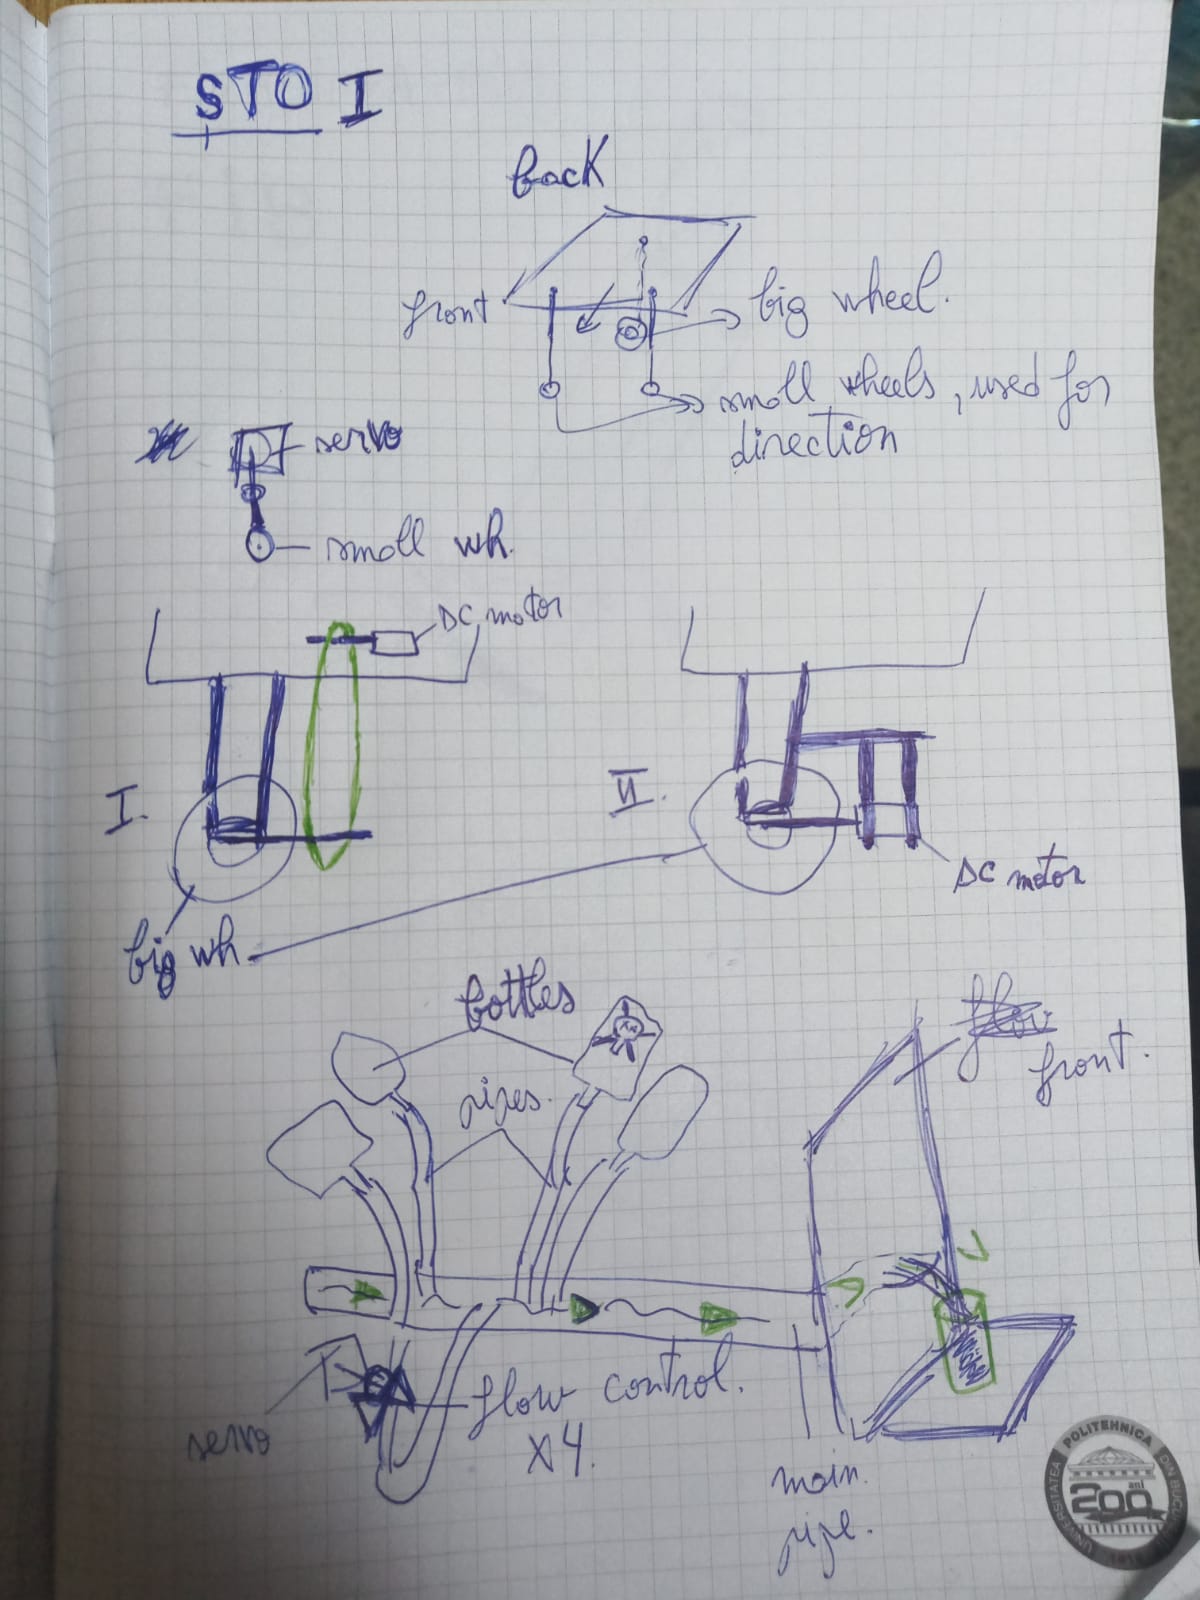 STO I
back
front
big wheel.
small wheels, used for
direction
servo
small wh.
DC motor
I.
II.
DC motor
big wh
bottles
pipes.
front.
servo
flow control.
x4.
main
pipe.
UNIVERSITATEA POLITEHNICA DIN
200
ani